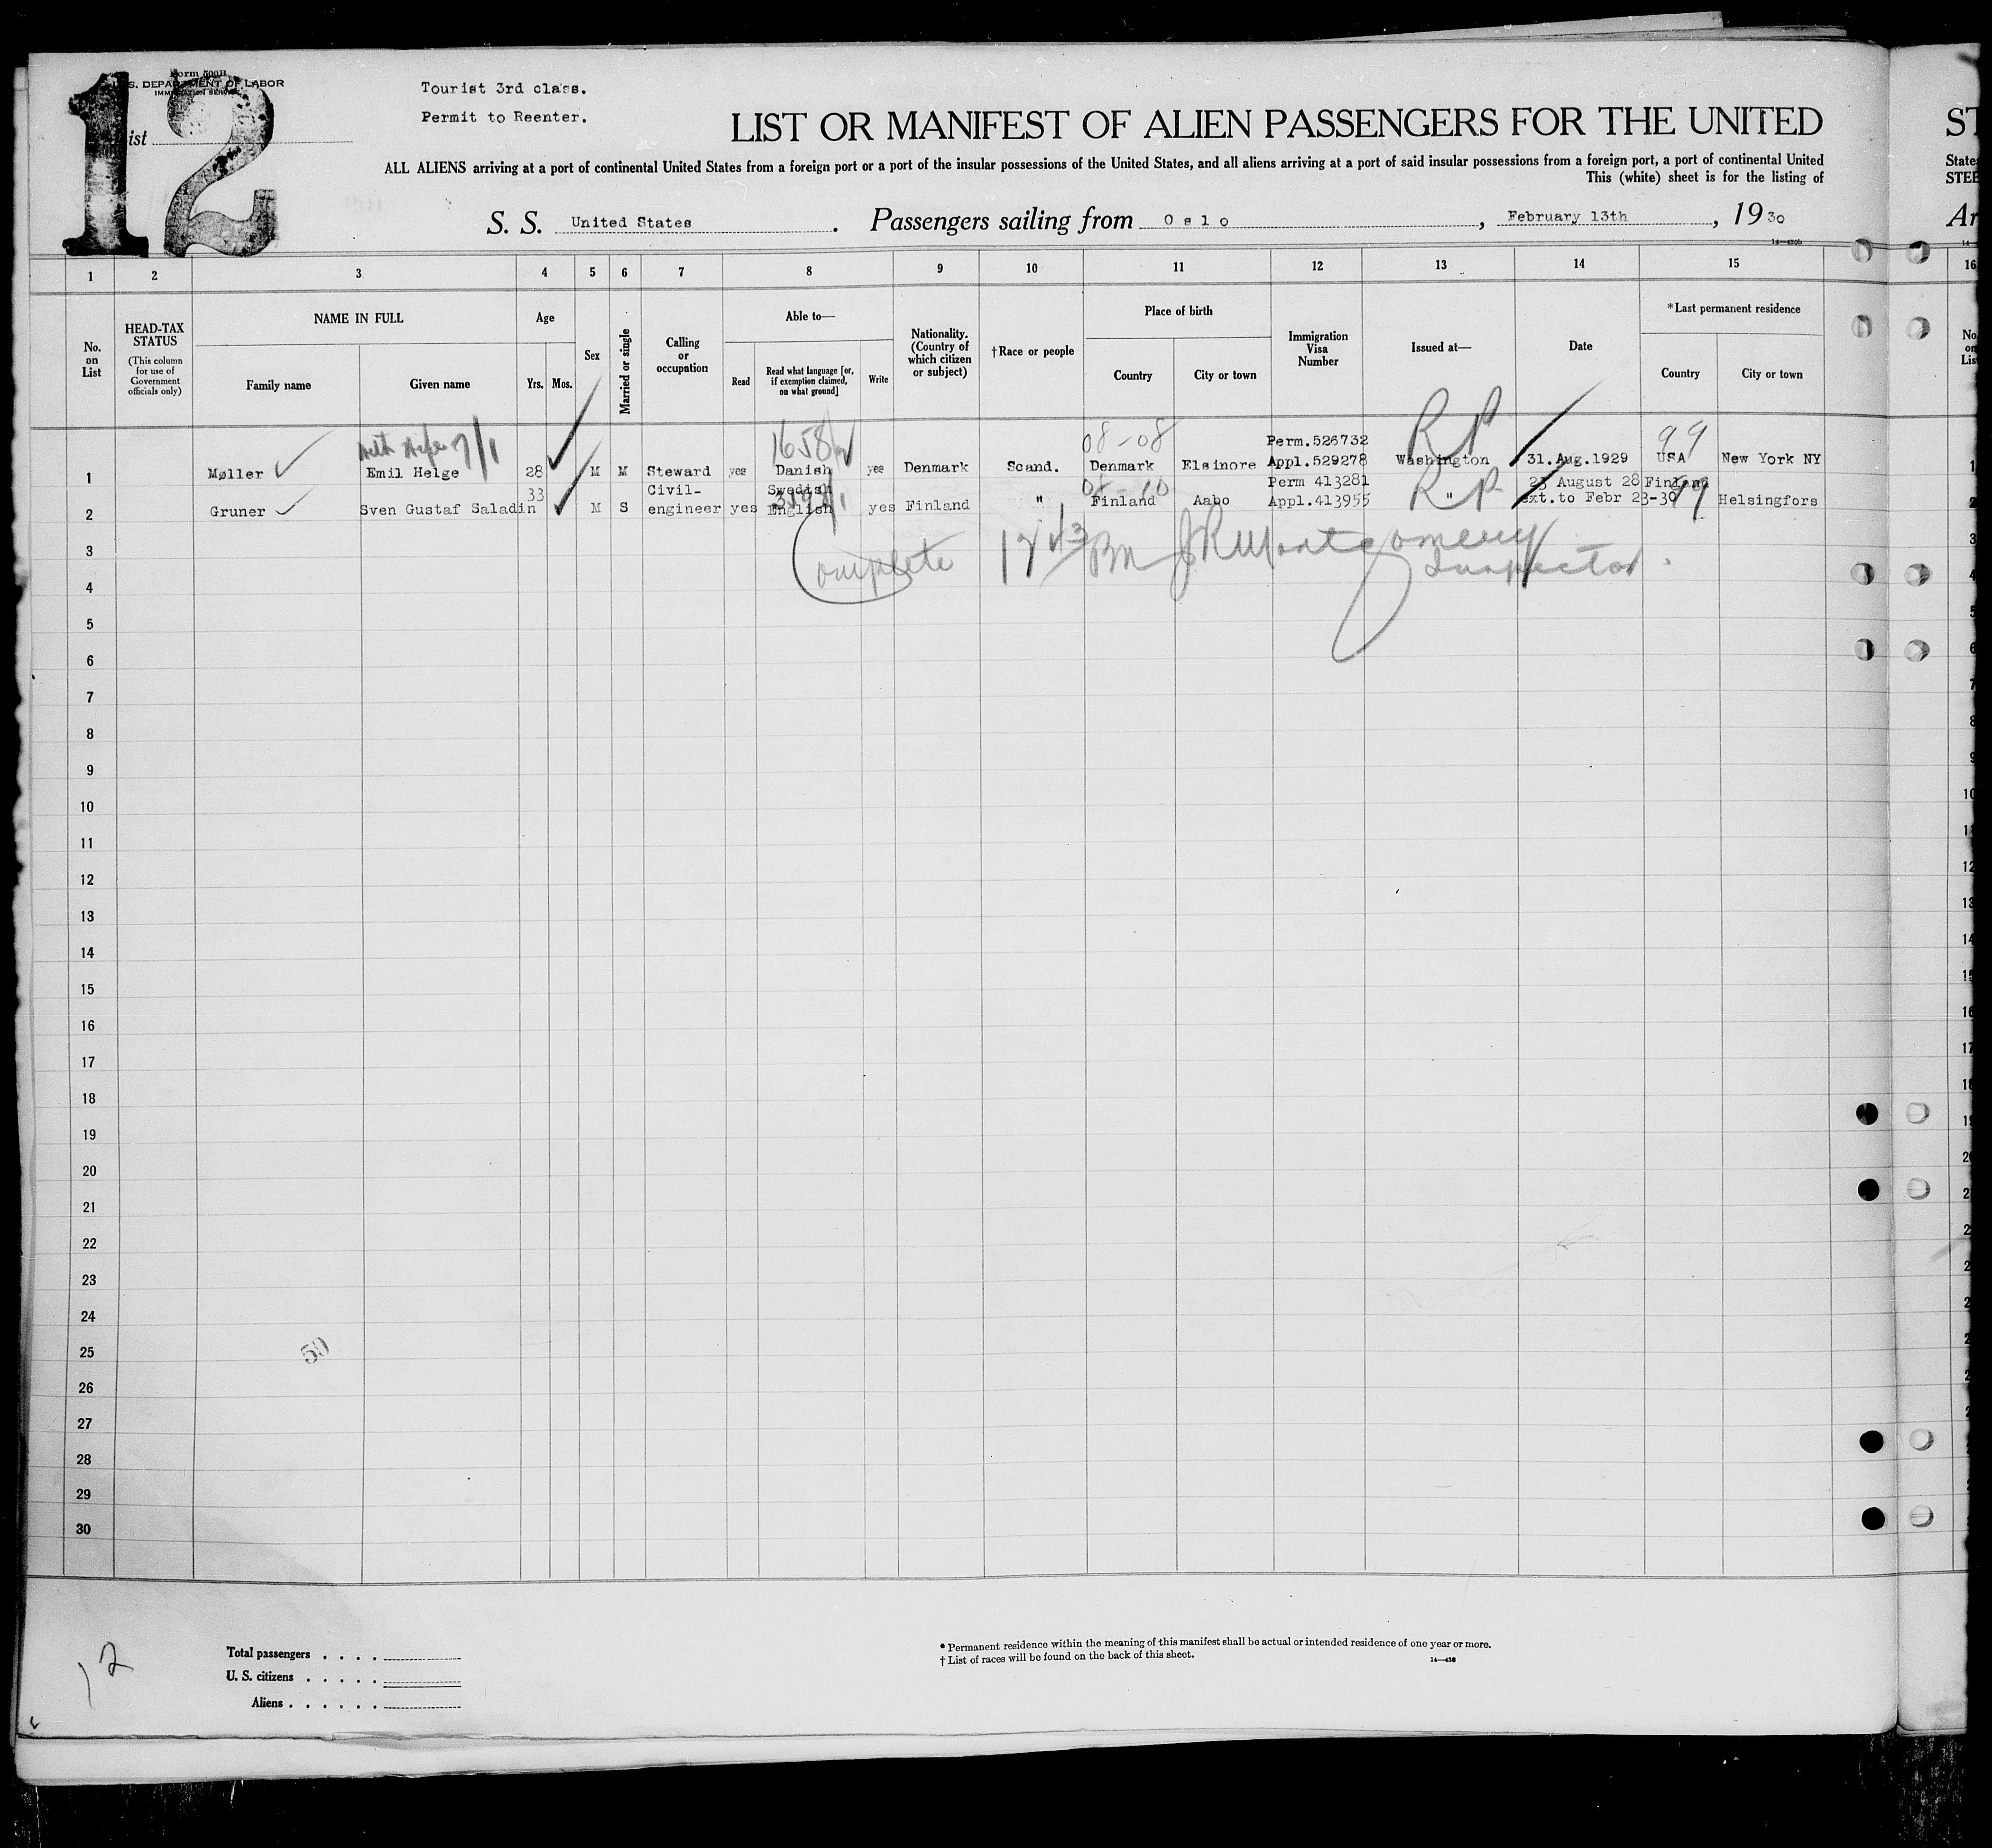 Form 500B
U. S. DEPARTMENT OF LABOR
IMMIGRATION SERVICE
List
12
Tourist 3rd class.
Permit to Reenter.
LIST OR MANIFEST OF ALIEN PASSENGERS FOR THE UNITED
ALL ALIENS arriving at a port of continental United States from a foreign port or a port of the insular possessions of the United States, and all aliens arriving at a port of said insular possessions from a foreign port, a port of continental United
This (white) sheet is for the listing of
S. S. United States. Passengers sailing from Oslo, February 13th, 1930
1 2 3 4 5 6 7 8 9 10 11 12 13 14 15
No. on List
HEAD-TAX STATUS
(This column for use of Government officials only)
NAME IN FULL
Family name
Given name
Age
Yrs.
Mos.
Sex
Married or single
Calling or occupation
Able to—
Read
Read what language [or, if exemption claimed, on what ground]
Write
Nationality. (Country of which citizen or subject)
†Race or people
Place of birth
Country
City or town
Immigration Visa Number
Issued at—
Date
*Last permanent residence
Country
City or town
08-08 Perm.526732 RP 99
1 Møller Emil Helge 28 M M Steward yes Danish yes Denmark Scand. Denmark Elsinore Appl.529278 Washington 31.Aug.1929 USA New York NY
33 Civil- Swedish Perm 413281 23 August 28 Finland
2 Gruner Sven Gustaf Saladin M S engineer yes English yes Finland " Finland Aabo Appl.413955 RP " ext.to Febr 23-30 99 Helsingfors
3
Complete JR Montgomery
Inspector.
4
5
6
7
8
9
10
11
12
13
14
15
16
17
18
19
20
21
22
23
24
25
50
26
27
28
29
30
12
Total passengers
U. S. citizens
Aliens
* Permanent residence within the meaning of this manifest shall be actual or intended residence of one year or more.
† List of races will be found on the back of this sheet.